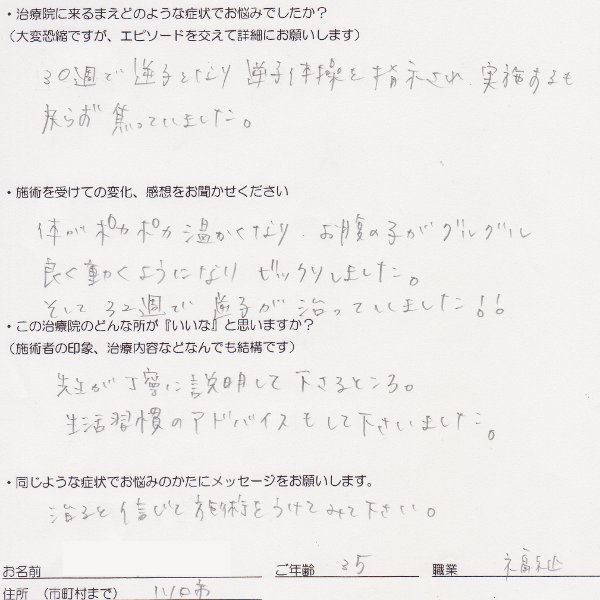 ・治療院に来るまえどのような症状でお悩みでしたか？
(大変恐縮ですが、エピソードを交えて詳細にお願いします)
30週で逆子となり 逆子体操を指示され、実施するも
戻らず焦っていました。
・施術を受けての変化、感想をお聞かせください
体がポカポカ温かくなり、お腹の子がグルグル
良く動くようになりビックリしました。
そして32週で逆子が治っていました!!
・この治療院のどんな所が『いいな』と思いますか？
(施術者の印象、治療内容などなんでも結構です)
先生が丁寧に説明して下さるところ。
生活習慣のアドバイスもして下さいました。
・同じような症状でお悩みのかたにメッセージをお願いします。
治ると信じて施術をうけてみて下さい。
お名前 ご年齢 35 職業 福祉
住所 (市町村まで) 川口市